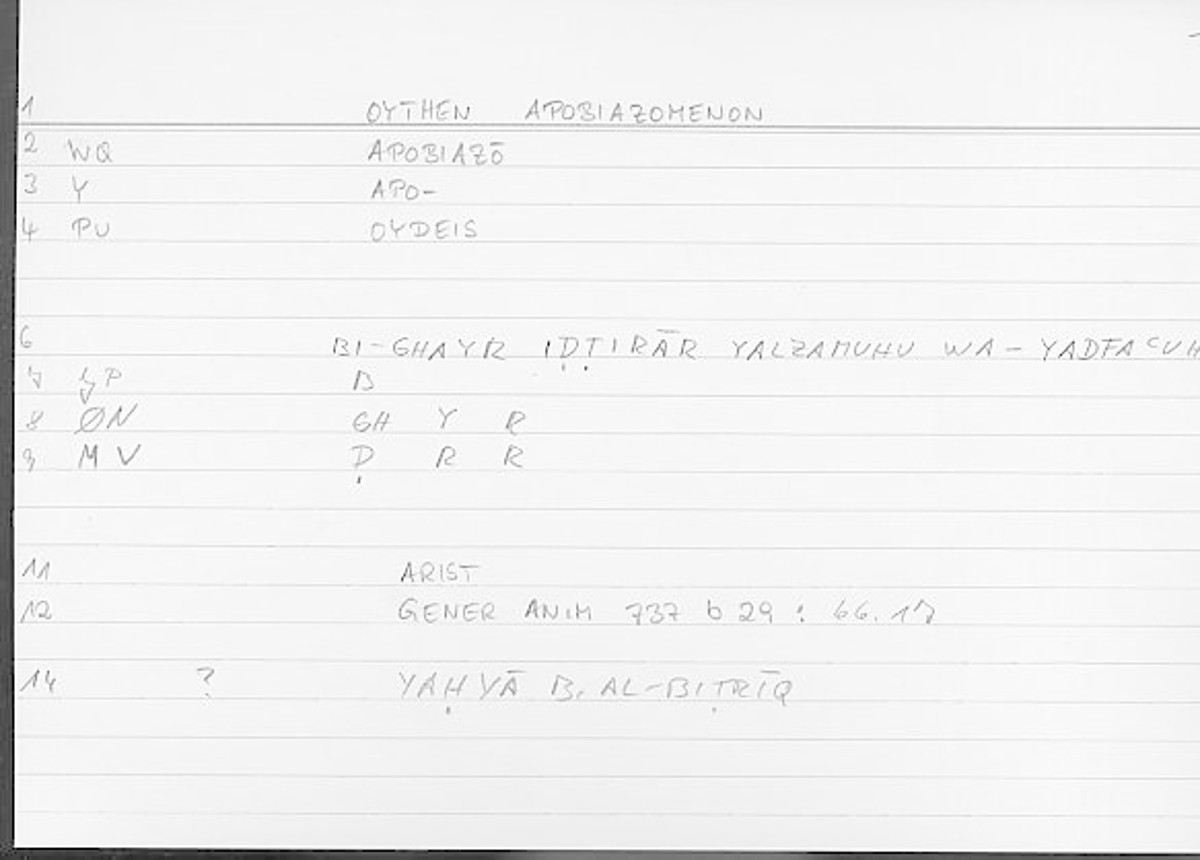 1 OYTHEN APOBIAZOMENON
2 WQ APOBIAZŌ
3 Y APO-
4 PU OYDEIS
6 BI-GHAYR IḌṬIRĀR YALZAMUHU WA-YADFAʿUH
7 B
8 ØN GH Y R
9 MV Ḍ R R
11 ARIST
12 GENER ANIM 737 b 29 : 66.17
14 ? YAḤYĀ B. AL-BIṬRĪQ